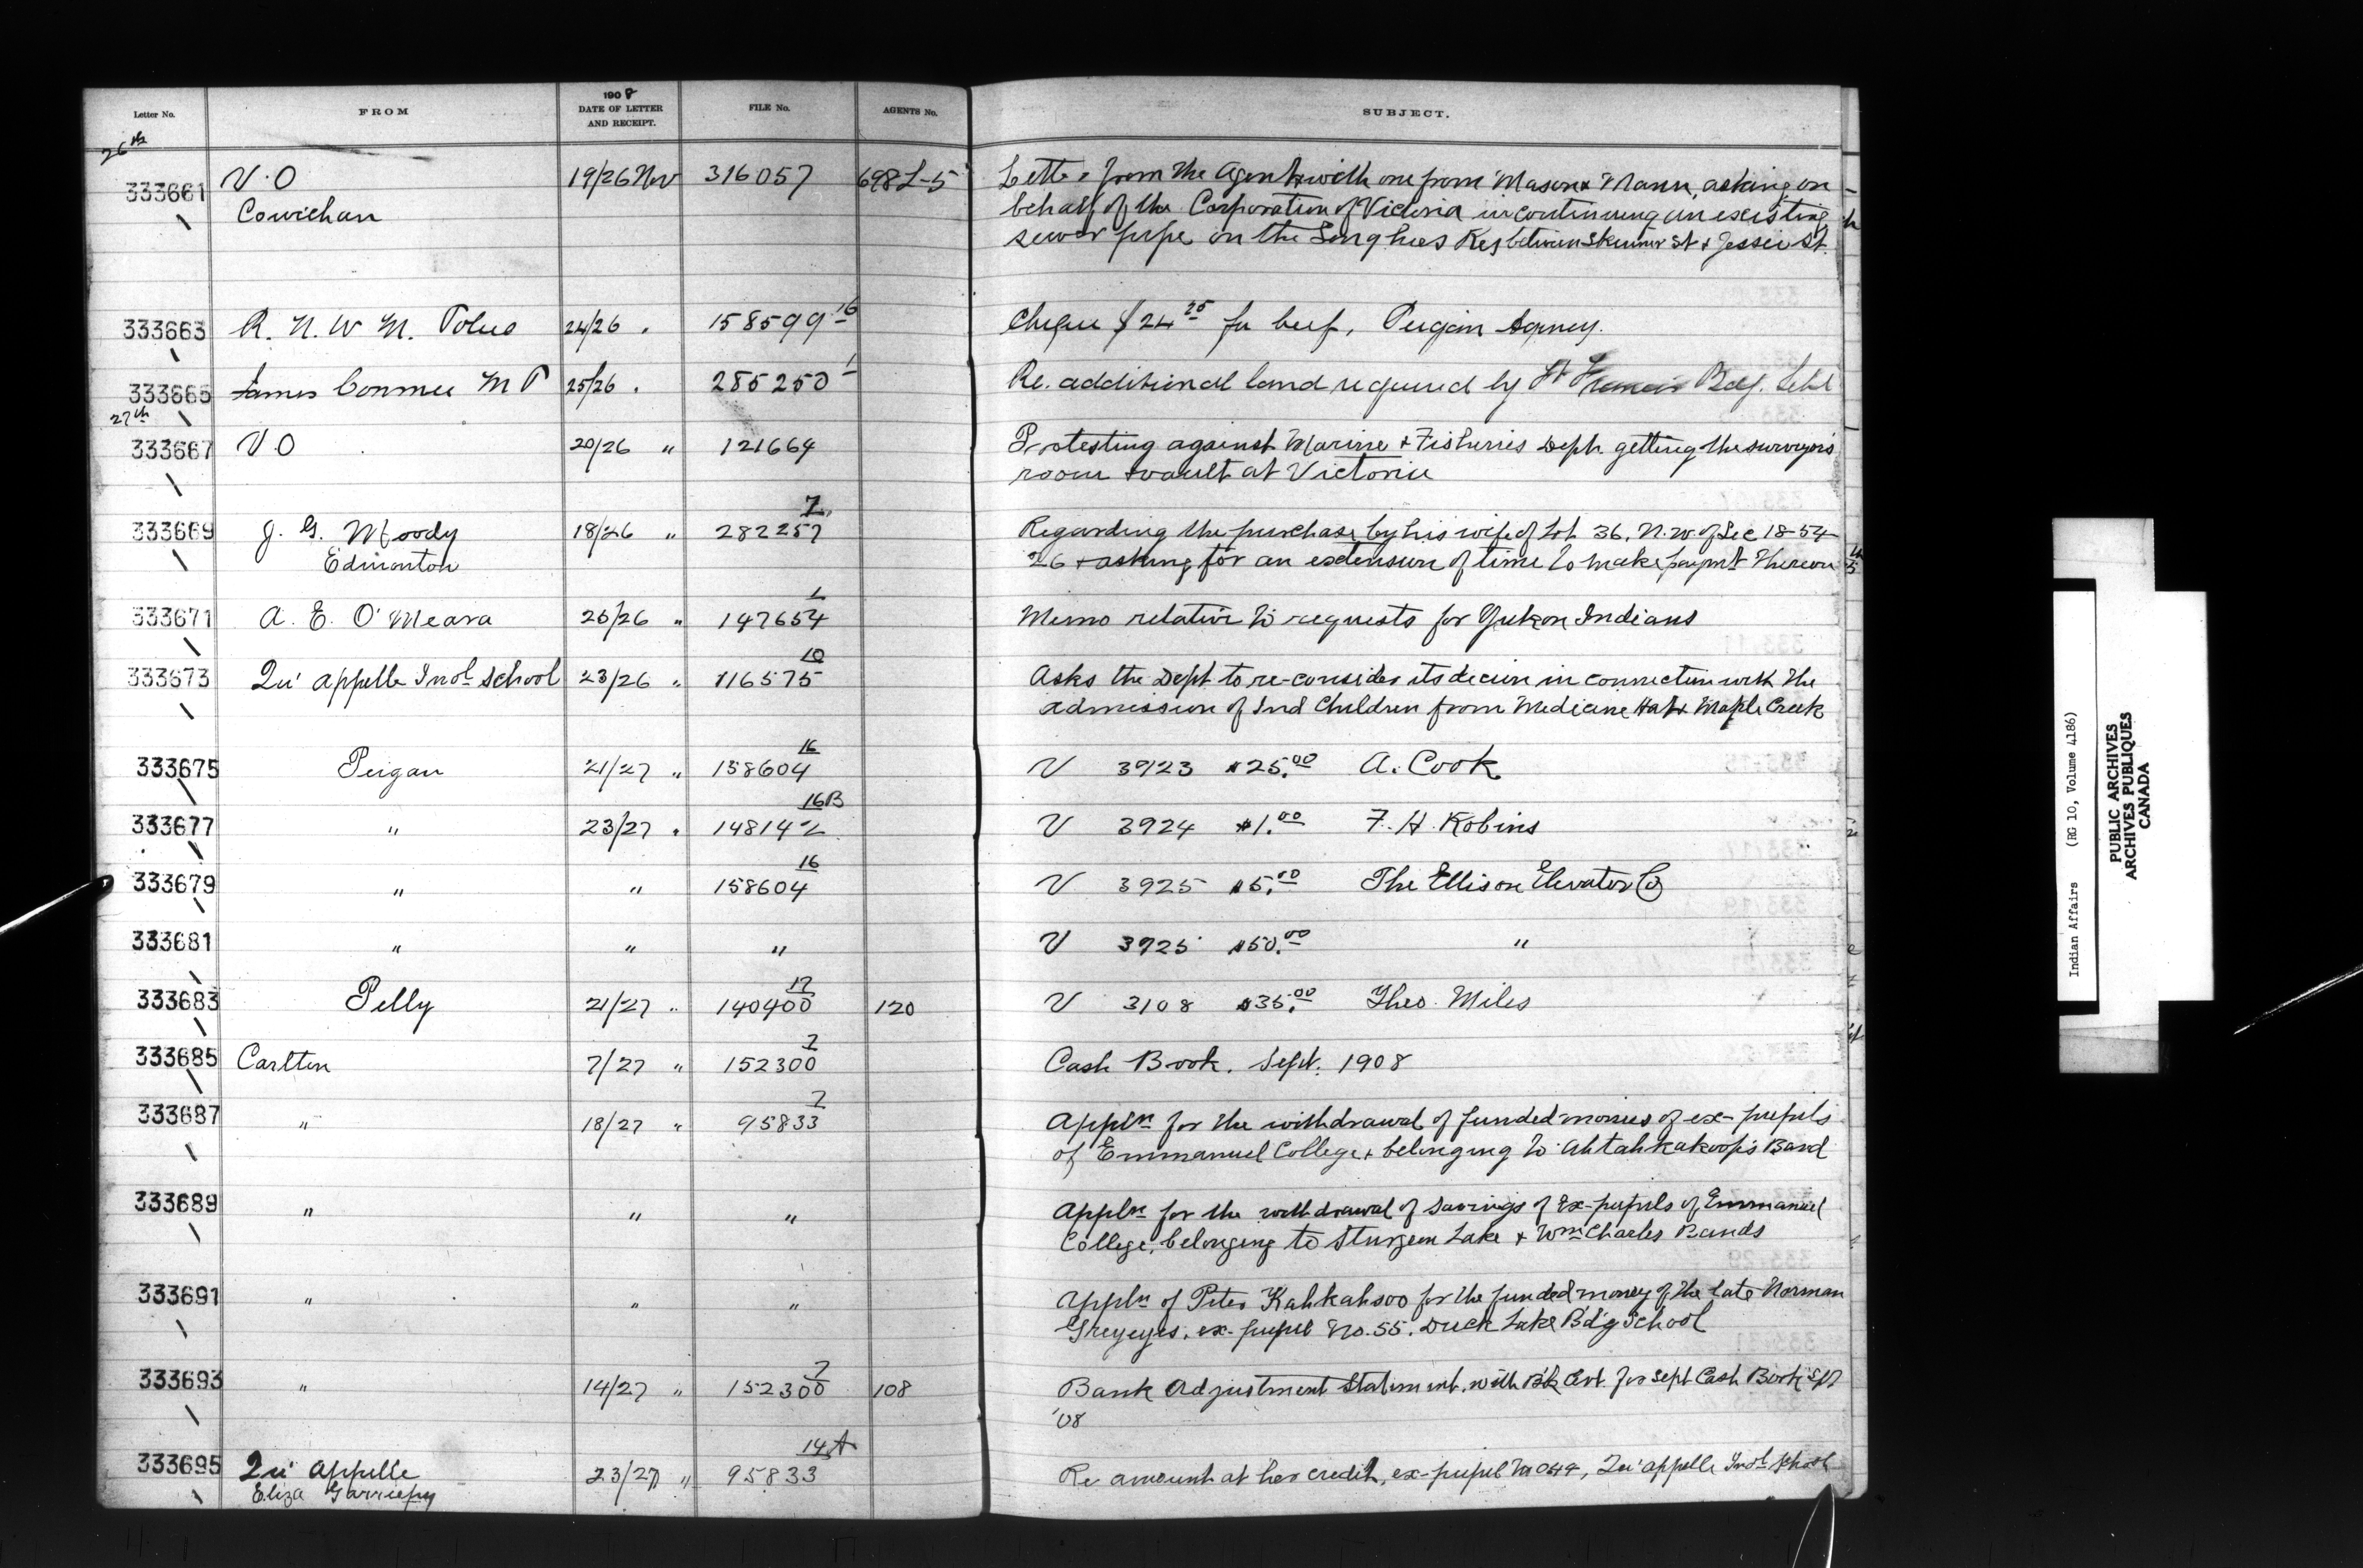 Letter No. FROM 1908 DATE OF LETTER AND RECEIPT. FILE No. AGENTS No. SUBJECT.
26th
333661 V.O 19/26 Nov 316057 698L-5 Letter from the Agent with one from Mason & Mann, asking on
Cowichan behalf of the Corporation of Victoria in continuing an existing
sewer pipe on the Songhees Res between Skinner St & Jessie St.
333663 R. N. W. M. Police 24/26 " 158599 16 Cheque $24 25 for beef, Peigan Agency.
333665 James Conmee M P 25/26 " 285250 1 Re. additional land required by Ft Francis Bdg. Schl
27th
333667 V O 20/26 " 121664 Protesting against Marine & Fisheries Dept. getting the surveyors
room & vault at Victoria
333669 J. G. Moody 18/26 " 282257 7 Regarding the purchase by his wife of Lot 36, N.W. of Sec 18-54-
Edmonton 26 & asking for an extension of time to make paymt thereon
333671 A. E. O'Meara 25/26 " 147654 1 Memo relative to requests for Yukon Indians
333673 Qu'appelle Indl School 23/26 " 116575 10 Asks the Dept to re-consider its decion in connection with the
admission of Ind Children from Medicine Hat & Maple Creek
333675 Peigan 21/27 " 158604 16 V 3923 $25.00 A. Cook
333677 " 23/27 " 148142 16B V 3924 $1.00 F. H. Robins
333679 " " 158604 16 V 3925 $5.00 The Ellison Elevator Co
333681 " " " V 3925 $50.00 "
333683 Pelly 21/27 " 140400 17 120 V 3108 $35.00 Theo. Miles
333685 Carlton 7/27 " 152300 2 Cash Book. Sept. 1908
333687 " 18/27 " 95833 7 Appln for the withdrawal of funded monies of ex-pupils
of Emmanuel College & belonging to Ahtahkakoop's Band
333689 " " " Appln for the withdrawal of savings of Ex-pupils of Emmanuel
College, belonging to Sturgeon Lake & Wm Charles Bands
333691 " " " Appln of Peter Kahkahsoo for the funded money of the late Norman
Greyeyes, ex-pupil No. 55. Duck Lake Bd'g School
333693 " 14/27 " 152300 2 108 Bank Adjustment Statement, with Bk Cert. for Sept Cash Book
'08
333695 Qu'appelle 23/27 " 95833 14A Re amount at her credit, ex-pupil Qu'appelle Indl School
Eliza Garriepy
Indian Affairs (RG 10, Volume 4186)
PUBLIC ARCHIVES
ARCHIVES PUBLIQUES
CANADA